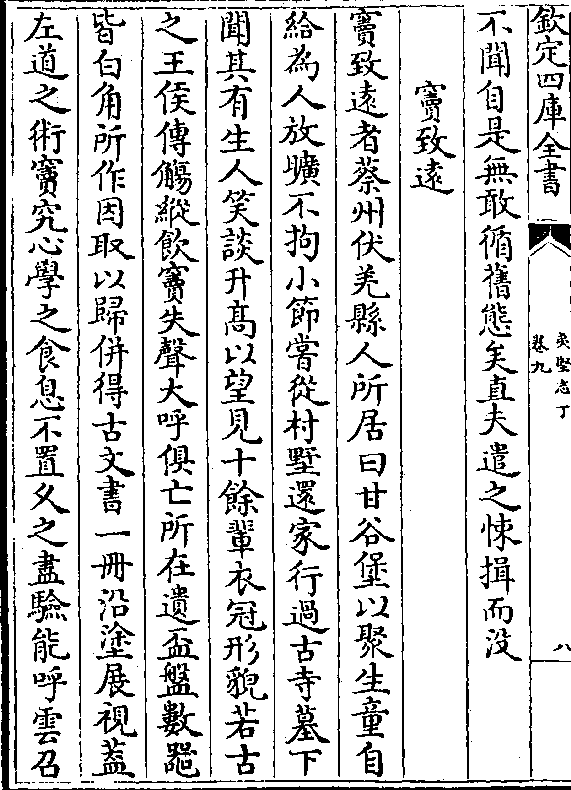 欽定四庫全書
夷堅志丁
卷九
八
不聞自是無敢循舊態矣直夫遣之悚揖而没
竇致遠
竇致遠者蔡州伏羌縣人所居曰甘谷堡以聚生童自
給為人放曠不拘小節嘗從村墅還家行過古寺墓下
聞其有生人笑談升髙以望見十餘輩衣冠形貌若古
之王侯傳觴縱飲竇失聲大呼俱亡所在遺盃盤數噐
皆白角所作因取以歸併得古文書一冊沿塗展視葢
左道之術竇究心學之食息不置久之盡驗能呼雲召